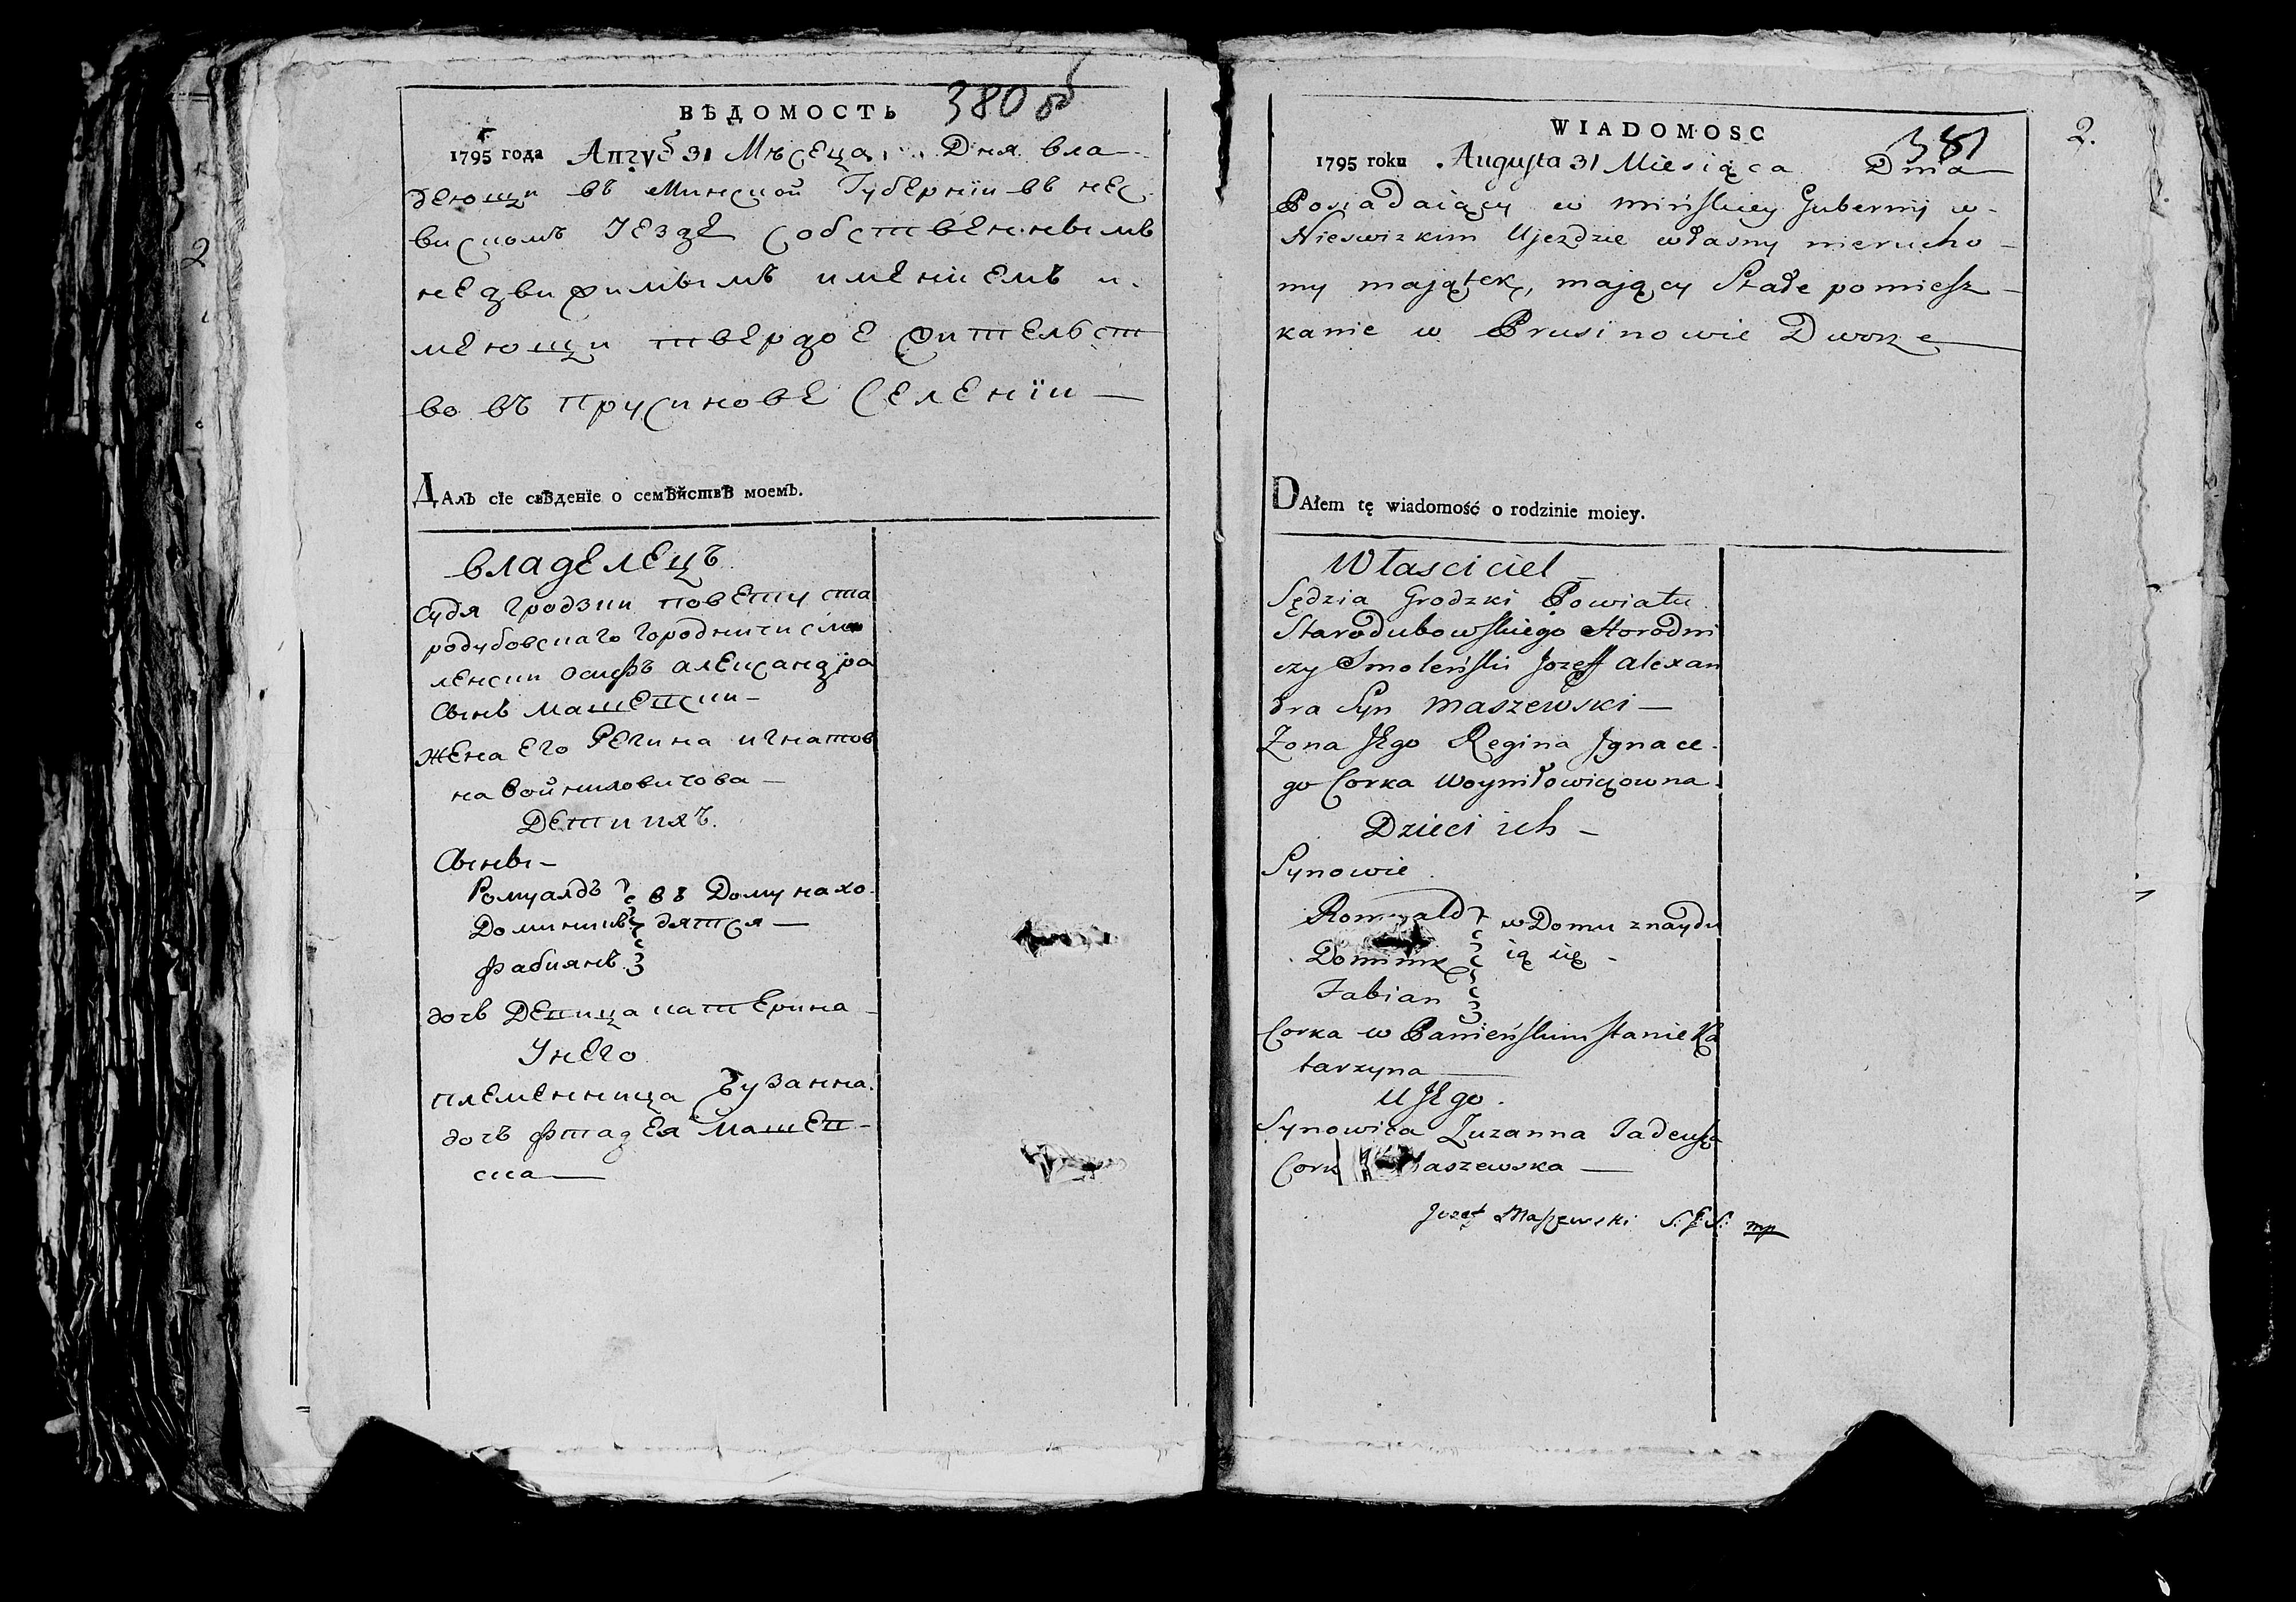 2
ВѢДОМОСТЬ 380 об
1795 года Авгус 31 Мѣсеца Дня вла-
деющи въ Минской Губернїи въ нес
вискомъ Уезде Собственнымъ
недвижимымъ имениемъ и
меющи твердое жительст
во въ Прусинове Селенїи —
ДАлЪ сїе свѢденїе о семѢйствѢ моемЪ.
владелецъ
Судя Гродзки повету ста
родубовскаго Городничи смо
ленски Осифъ Александра
Сынъ Машевски —
жена его Регина игнатов
на Войниловичова —
Дети ихъ.
Сыны —
Ромуалдъ въ Дому нахо
Доминикъ дятся —
Фабиянъ
дочь Девица катерина
У него
племенница Зузанна
дочъ Фтадея Машев-
ска —
2.
WIADOMOSC 381
1795 roku Augusta 31 Miesiąca Dnia
Posiadaiący w Mińskiey Gubernij w
Nieswizkim Ujezdzie własny nierucho-
my majątek, mający Stałe pomiesz-
kanie w Prusinowie Dworze
DAłem tę wiadomość o rodzinie moiey.
Własciciel
Sędzia Grodzki Powiatu
Starodubowskiego Horodni
czy Smoleński Jozeff Alexan
dra Syn Maszewski —
Zona Jego Regina Jgnace-
go Corka Woyniłowiczowna
Dzieci ich —
Synowie
Romuald w Domu znaydu
Dominik ią się -
Fabian
Corka w Panieńskim stanie Ka
tarzyna
U Jego.
Synowica Zuzanna Tadeusza
Cork aszewska —
Jozef Maszewski S: G: S: mp